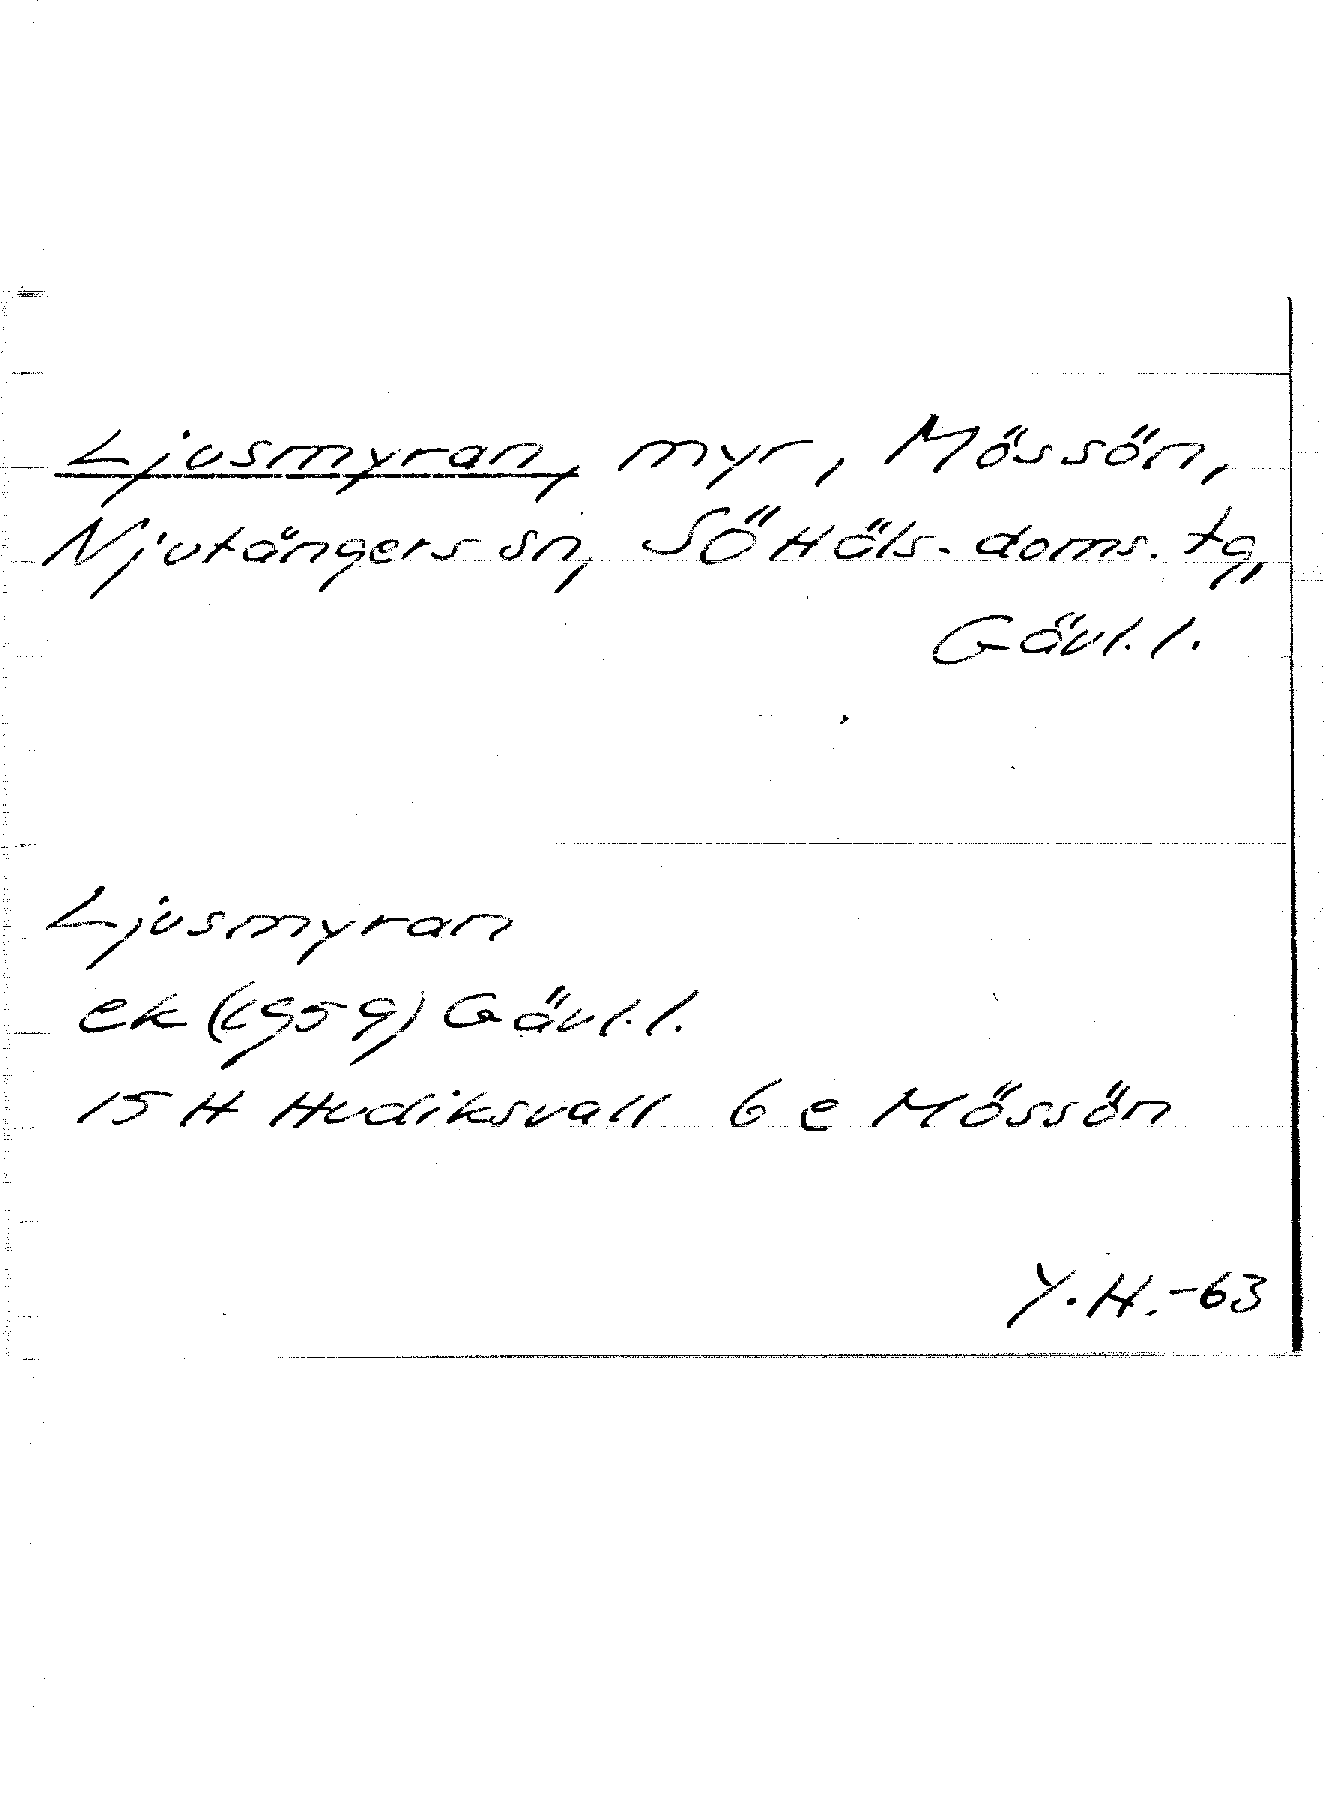 Ljusmyran, myr, Mössön,
Njutångers sn, SÖHäls. doms. tg,
Gävl. l.
Ljusmyran
ek (1959) Gävl. l.
15 H Hudiksvall 6 e Mössön
Y. H. -63